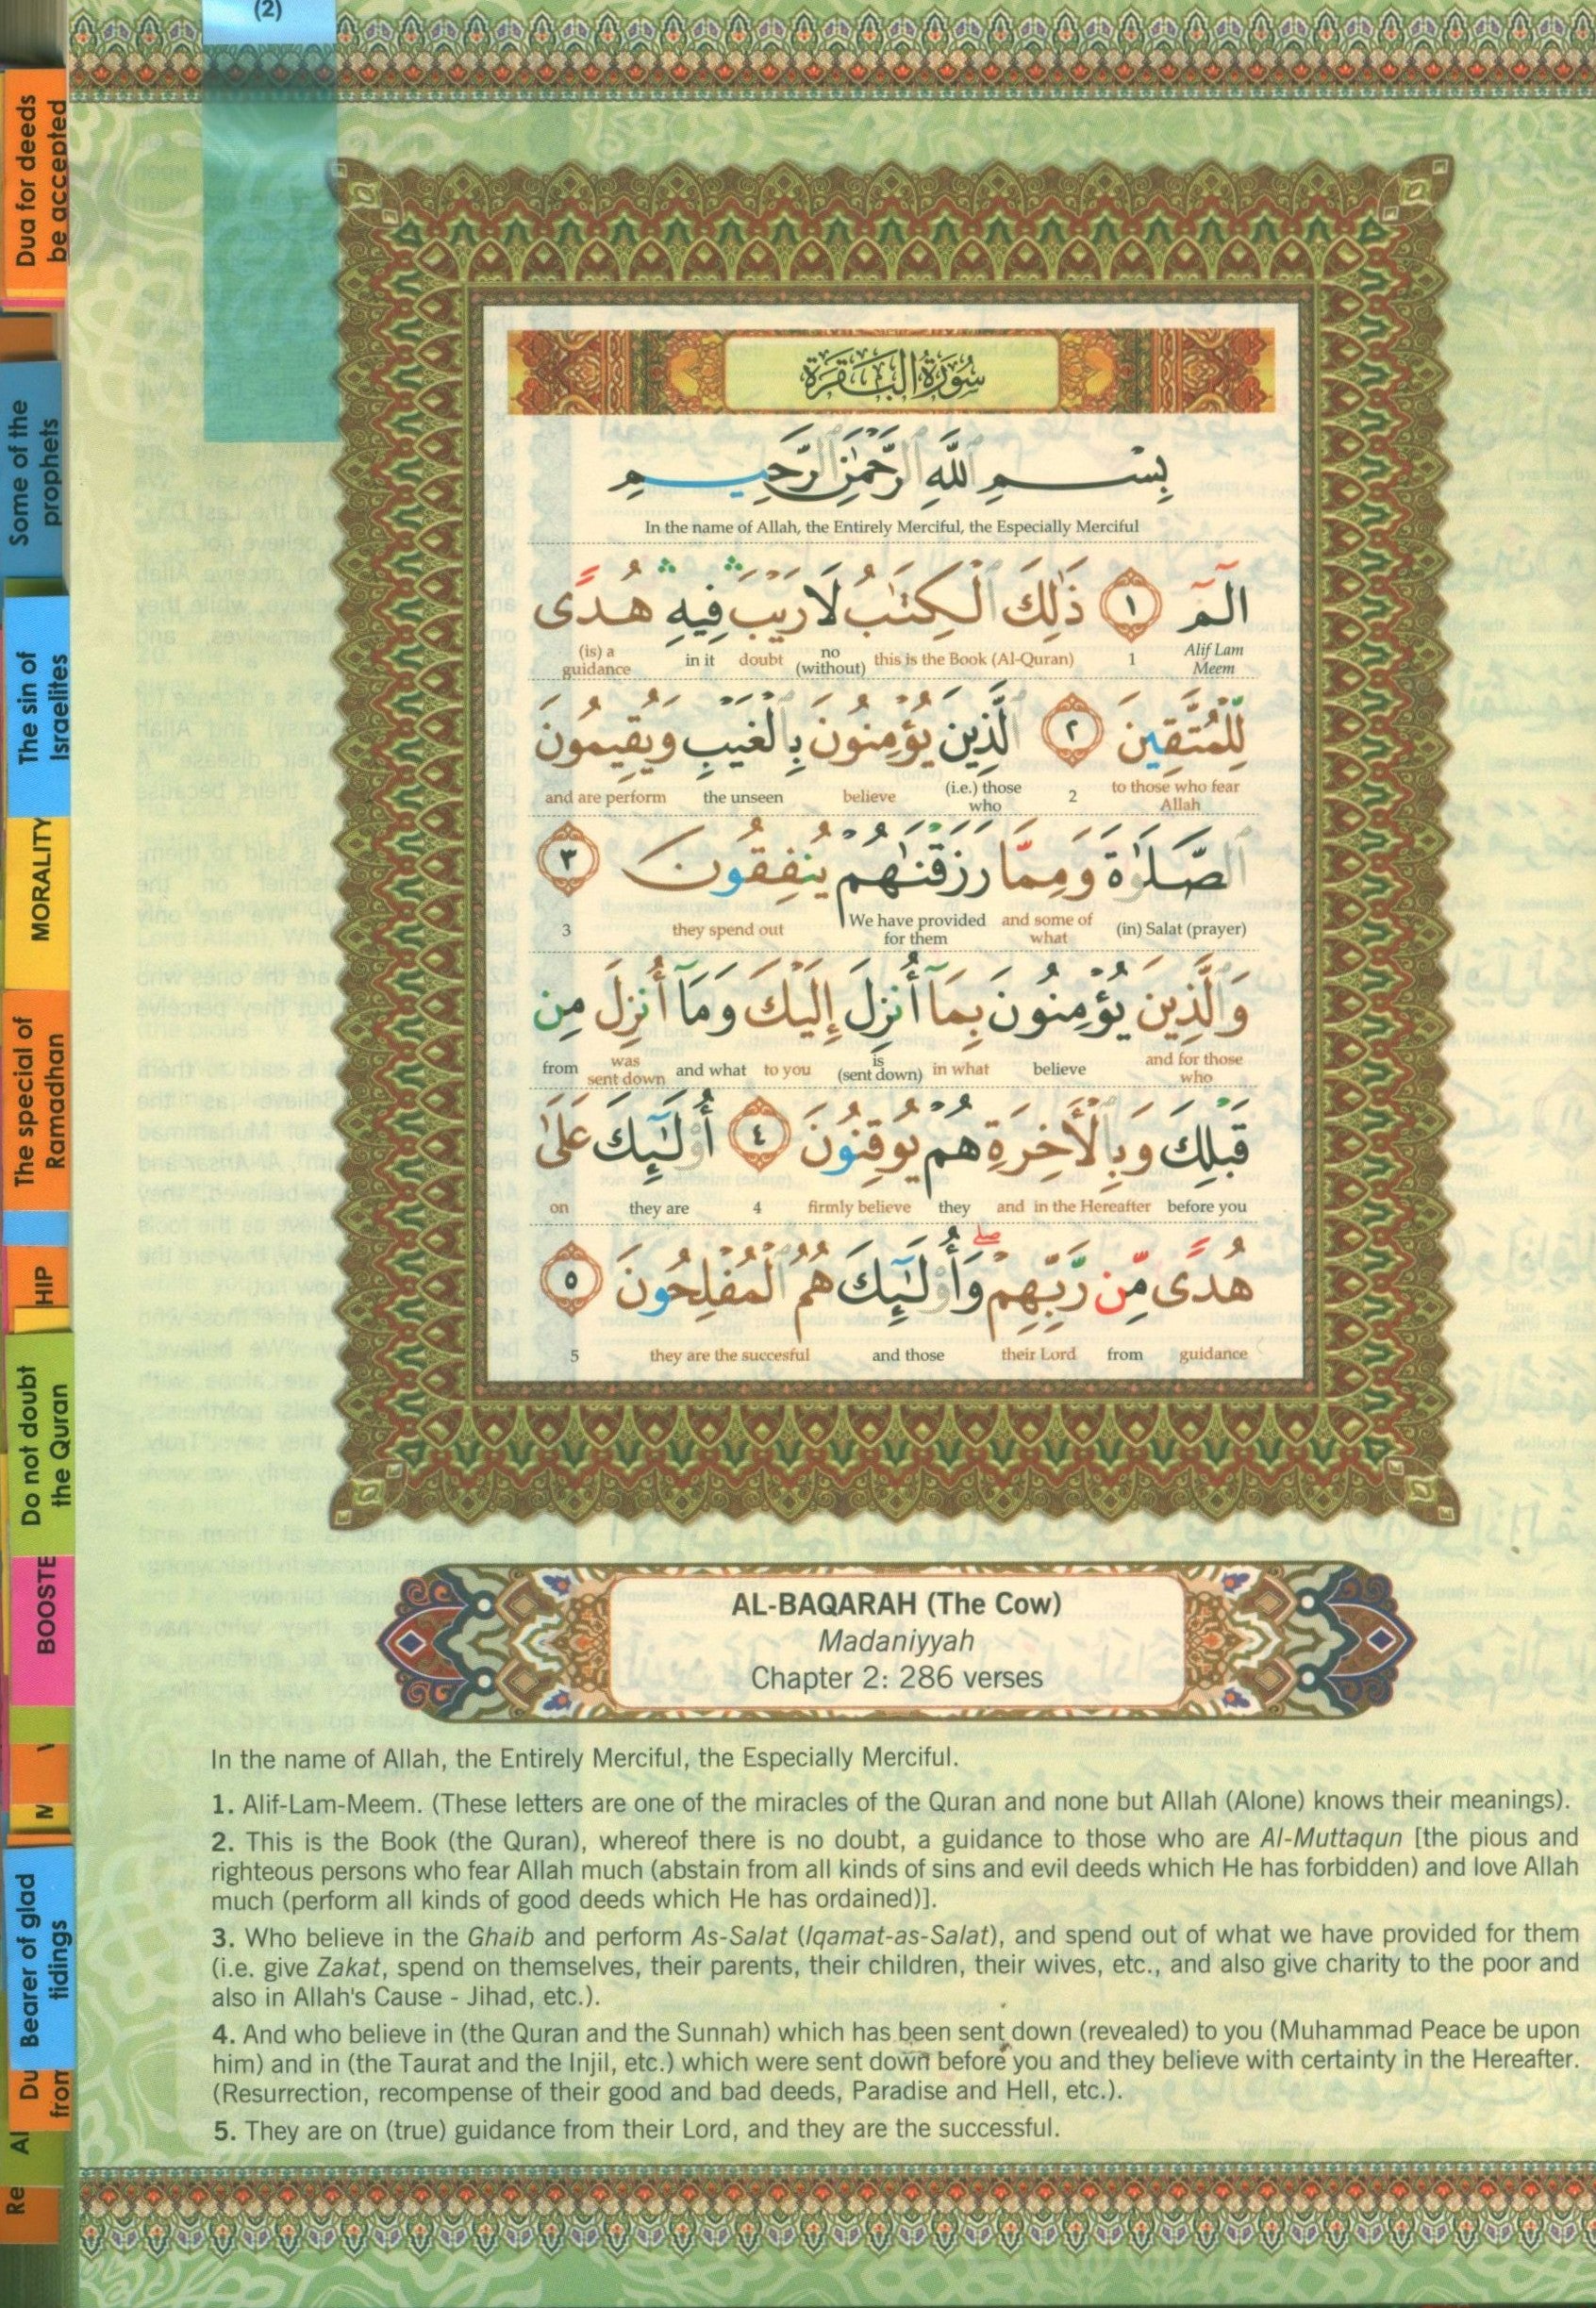 (2)
Dua for deeds
be accepted
Some of the
prophets
The sin of
Israelites
MORALITY
The special of
Ramadhan
HIP
Do not doubt
the Quran
BOOSTE
Bearer of glad
tidings
Du
from
Al
Re
سُورَةُ الْبَقَرَةِ
بِسْمِ اللَّهِ الرَّحْمَٰنِ الرَّحِيمِ
In the name of Allah, the Entirely Merciful, the Especially Merciful
الٓمٓ ١ ذَٰلِكَ ٱلْكِتَٰبُ لَا رَيْبَ ۛ فِيهِ ۛ هُدًى
(is) a guidance in it doubt no (without) this is the Book (Al-Quran) 1 Alif Lam Meem
لِّلْمُتَّقِينَ ٢ ٱلَّذِينَ يُؤْمِنُونَ بِٱلْغَيْبِ وَيُقِيمُونَ
and are perform the unseen believe (i.e.) those who 2 to those who fear Allah
ٱلصَّلَوٰةَ وَمِمَّا رَزَقْنَٰهُمْ يُنفِقُونَ ٣
3 they spend out We have provided for them and some of what (in) Salat (prayer)
وَٱلَّذِينَ يُؤْمِنُونَ بِمَآ أُنزِلَ إِلَيْكَ وَمَآ أُنزِلَ مِن
from was sent down and what to you is (sent down) in what believe and for those who
قَبْلِكَ وَبِٱلْأَخِرَةِ هُمْ يُوقِنُونَ ٤ أُو۟لَٰٓئِكَ عَلَىٰ
on they are 4 firmly believe they and in the Hereafter before you
هُدًى مِّن رَّبِّهِمْ ۖ وَأُو۟لَٰٓئِكَ هُمُ ٱلْمُفْلِحُونَ ٥
5 they are the succesful and those their Lord from guidance
AL-BAQARAH (The Cow)
Madaniyyah
Chapter 2: 286 verses
In the name of Allah, the Entirely Merciful, the Especially Merciful.
1. Alif-Lam-Meem. (These letters are one of the miracles of the Quran and none but Allah (Alone) knows their meanings).
2. This is the Book (the Quran), whereof there is no doubt, a guidance to those who are Al-Muttaqun [the pious and
righteous persons who fear Allah much (abstain from all kinds of sins and evil deeds which He has forbidden) and love Allah
much (perform all kinds of good deeds which He has ordained)].
3. Who believe in the Ghaib and perform As-Salat (Iqamat-as-Salat), and spend out of what we have provided for them
(i.e. give Zakat, spend on themselves, their parents, their children, their wives, etc., and also give charity to the poor and
also in Allah's Cause - Jihad, etc.).
4. And who believe in (the Quran and the Sunnah) which has been sent down (revealed) to you (Muhammad Peace be upon
him) and in (the Taurat and the Injil, etc.) which were sent down before you and they believe with certainty in the Hereafter.
(Resurrection, recompense of their good and bad deeds, Paradise and Hell, etc.).
5. They are on (true) guidance from their Lord, and they are the successful.